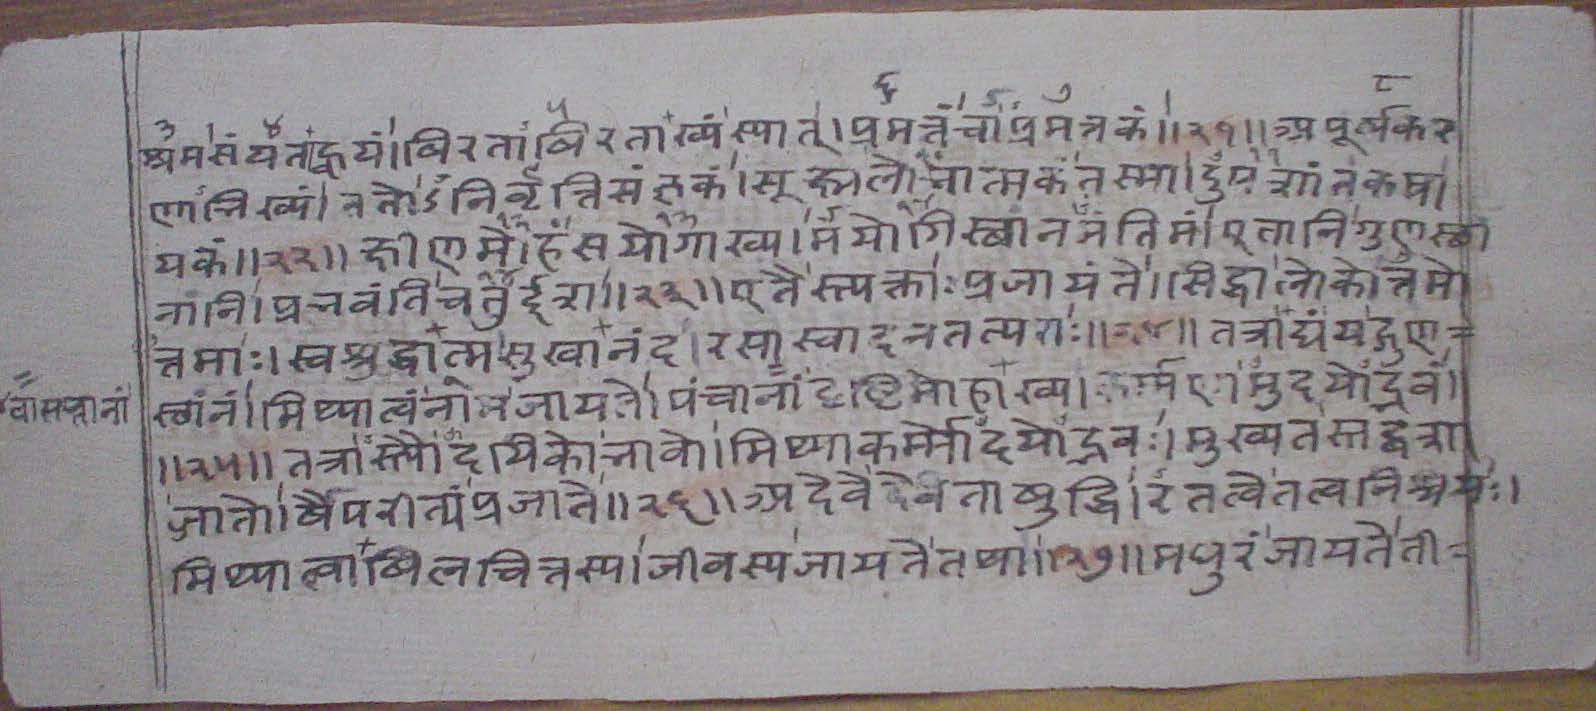 ६ ७ ८
श्रमसंयतोद्वयं। विरताविरताख्यं स्यात्। प्रमत्तं चाप्रमत्तकं।।२१।। अपूर्वकर
णाभिख्यं। ततोऽनिवृत्तिसंज्ञकं। सूक्ष्मलोभात्मकं तस्मा। दुपशांतकषा
यकं।।२२।। क्षीणमोहं सयोगाख्य। मयोगिस्थानमंतिमं। एतानि गुणस्था
नानि। प्रभवंति चतुर्दश।।२३।। एतैस्त्यक्ताः प्रजायंते। सिद्धा लोकोत्तमो
त्तमाः। स्वशुद्धात्मसुखानंद। रसास्वादनतत्पराः।।२४।। तत्राद्यं यद्गुण=
स्थानं। मिथ्यात्वं नाम जायते। पंचानां दृष्टिमोहाख्य। कर्मणामुदयोद्भवं।
वा सप्तानां
।।२५।। तत्रास्त्यौदयिको भावो। मिथ्याकर्मोदयोद्भवः। मुख्यतस्तद्वशा
जातो। वैपरीत्यं प्रजाते।।२६।। अदेवे देवताबुद्धि। रतत्वे तत्वनिश्चयः।
मिथ्यात्वाविलचित्तस्य। जीवस्य जायते तथा।।२७।। मधुरं जायते ती=